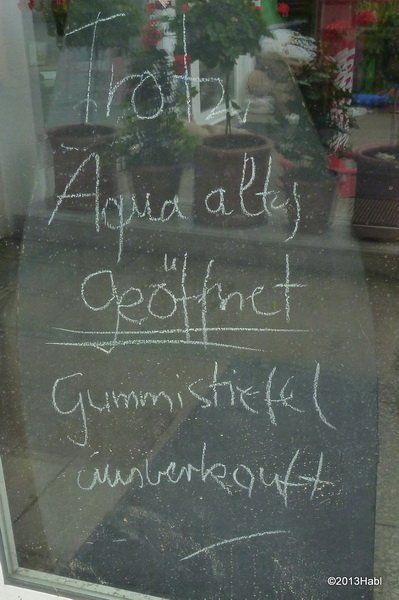 Trotz
Aqua alta
geöffnet
Gummistiefel
ausverkauft
©2013Habl